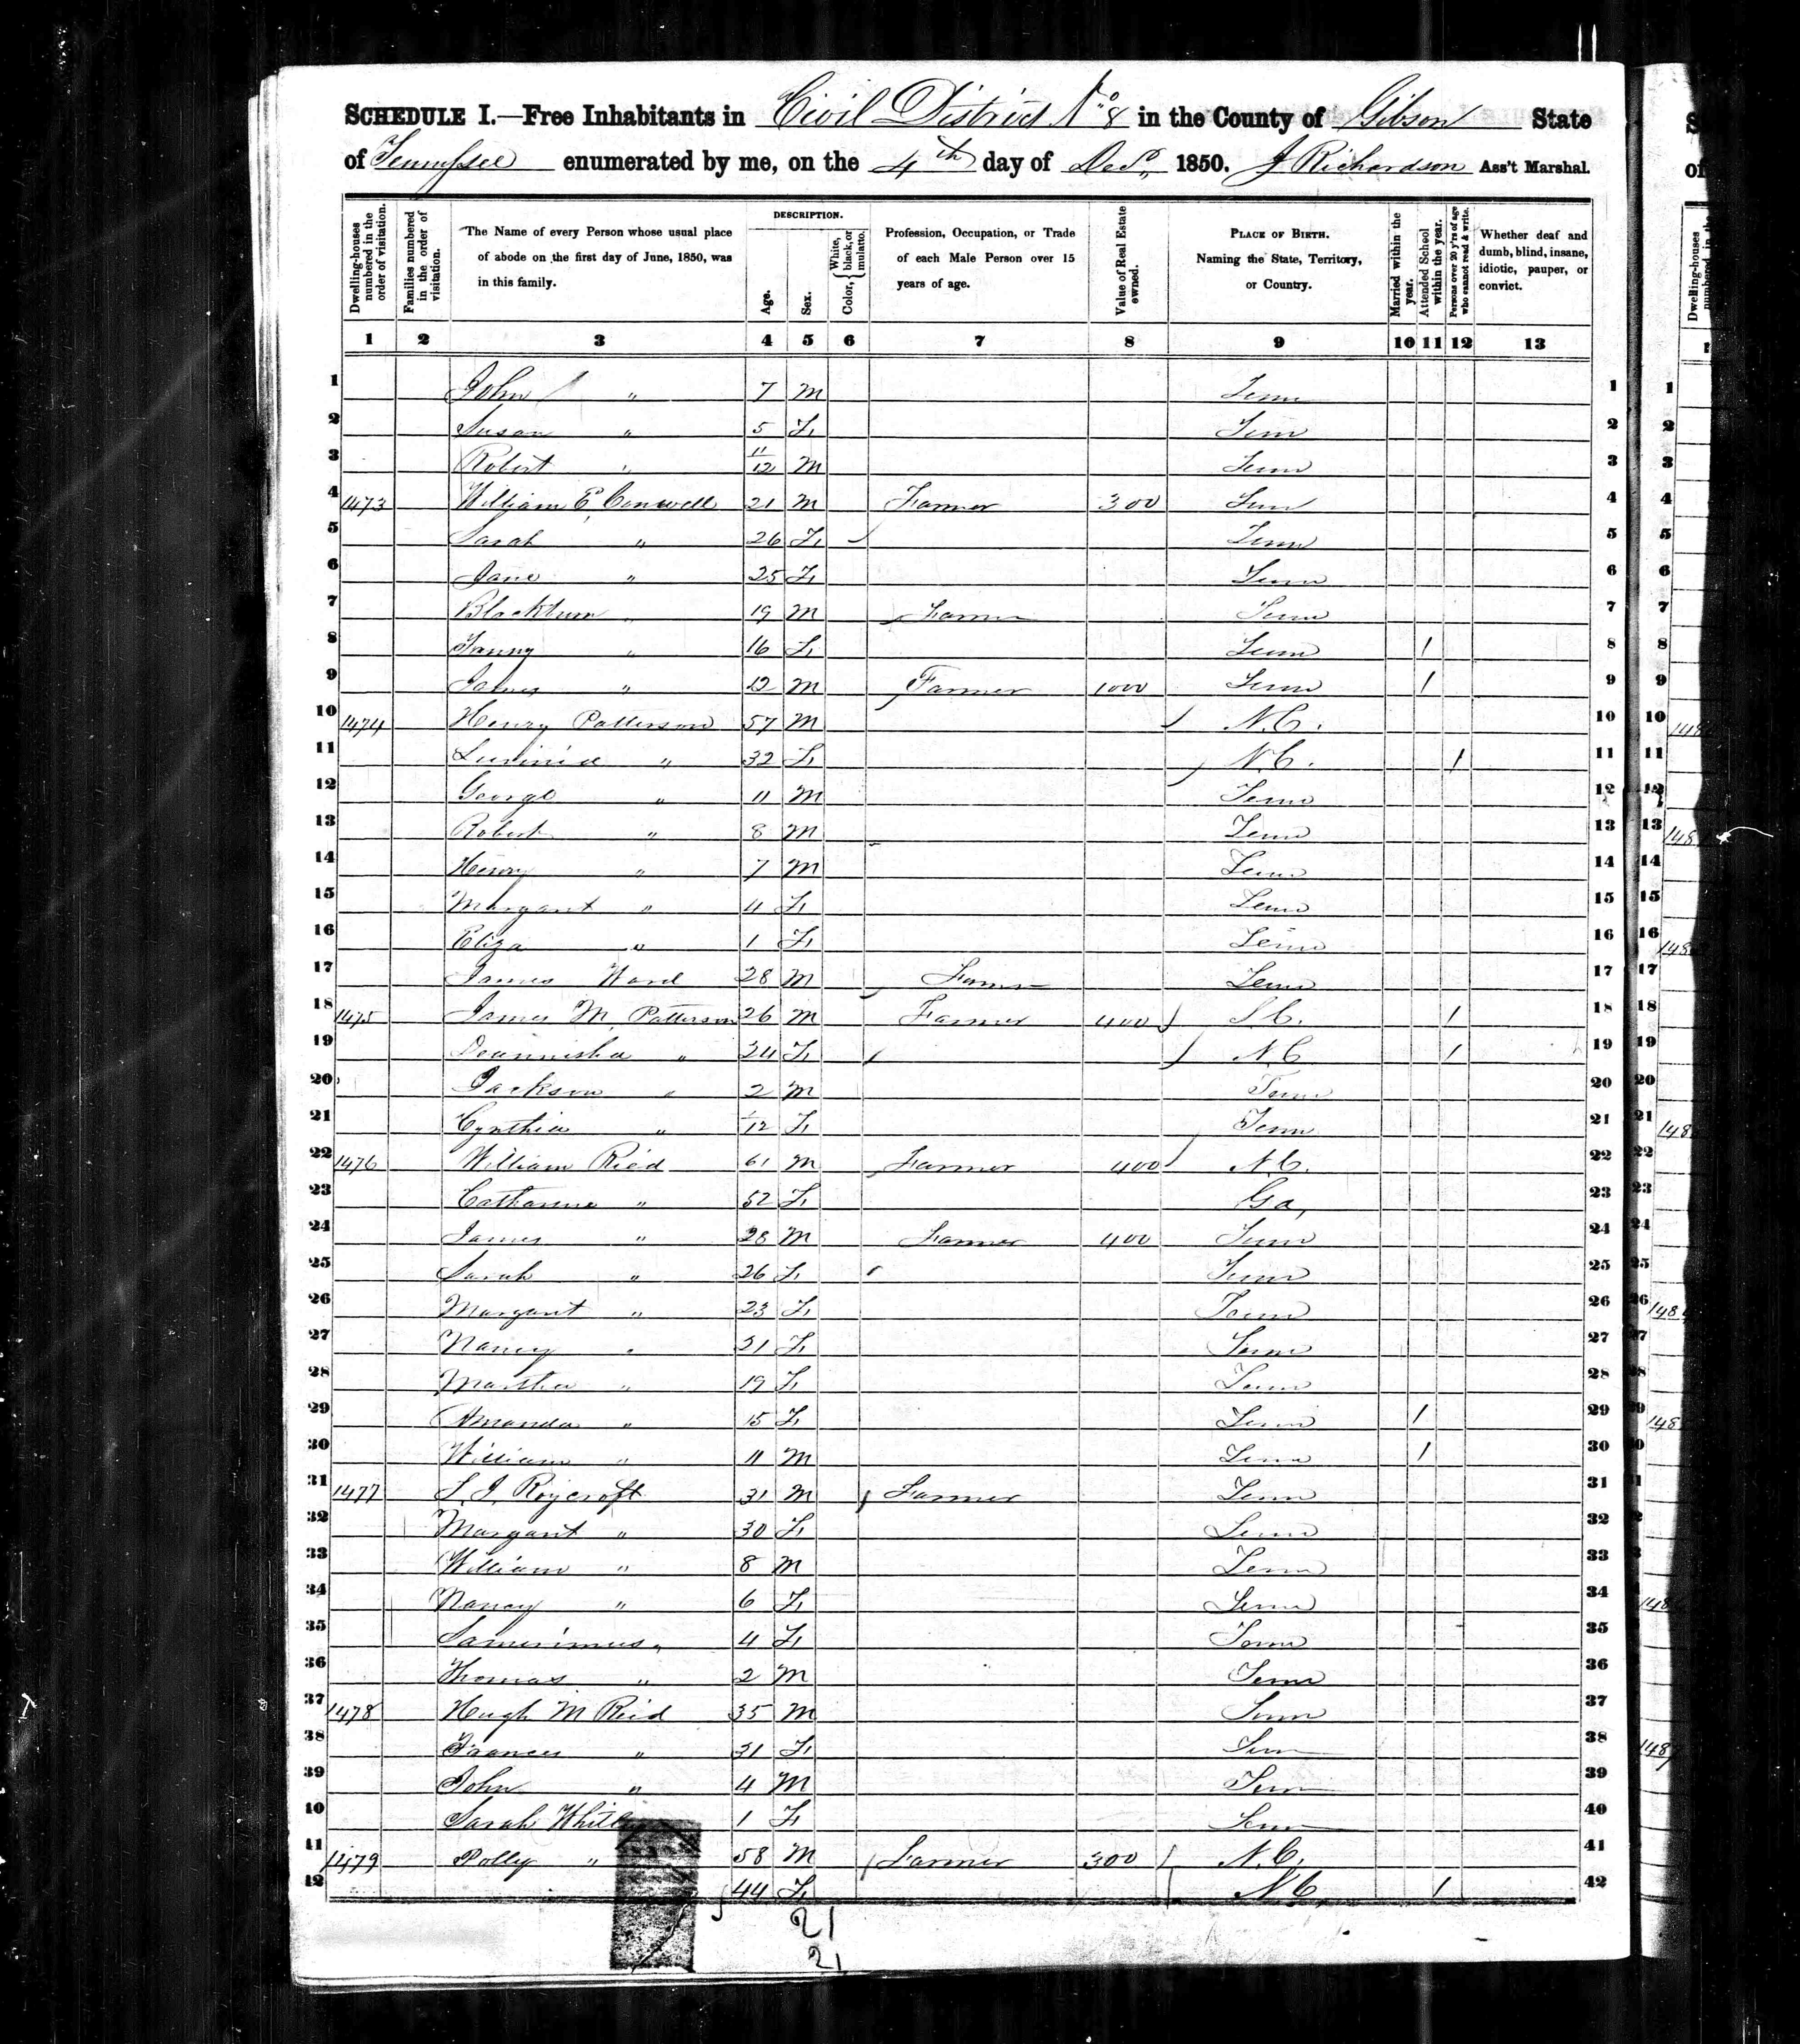 SCHEDULE I.—Free Inhabitants in Civil District No 8 in the County of Gibson State
of Tennessee enumerated by me, on the 4th day of Decr 1850. J Richardson Ass't Marshal.
Dwelling-houses numbered in the order of visitation.
Families numbered in the order of visitation.
The Name of every Person whose usual place of abode on the first day of June, 1850, was in this family.
DESCRIPTION.
Age.
Sex.
Color, White, black, or mulatto.
Profession, Occupation, or Trade of each Male Person over 15 years of age.
Value of Real Estate owned.
PLACE OF BIRTH. Naming the State, Territory, or Country.
Married within the year.
Attended School within the year.
Persons over 20 y'rs of age who cannot read & write.
Whether deaf and dumb, blind, insane, idiotic, pauper, or convict.
1 2 3 4 5 6 7 8 9 10 11 12 13
1 John " 7 M Tenn 1
2 Susan " 5 F Tenn 2
3 Robert " 11/12 M Tenn 3
4 1473 William E Conwell 21 M Farmer 300 Tenn 4
5 Sarah " 26 F Tenn 5
6 Jane " 25 F Tenn 6
7 Blackburn " 19 M Farmer Tenn 7
8 Fanny " 16 F Tenn / 8
9 James " 12 M Farmer 1000 Tenn / 9
10 1474 Henry Patterson 57 M N.C. 10
11 " 32 F N.C. / 11
12 George " 11 M Tenn 12
13 Robert " 8 M Tenn 13
14 Henry " 7 M Tenn 14
15 Margaret " 4 F Tenn 15
16 Eliza " 1 F Tenn 16
17 James Ward 28 M Farmer Tenn 17
18 1475 James M. Patterson 26 M Farmer 400 S.C. / 18
19 Deannisha " 24 F N.C / 19
20 Jackson " 2 M Tenn 20
21 Cynthia " 1/12 F Tenn 21
22 1476 William Ried 61 M Farmer 400 N.C. 22
23 Catharine " 52 F Ga, 23
24 James " 28 M Farmer 400 Tenn 24
25 Sarah " 26 F Tenn 25
26 Margaret " 23 F Tenn 26
27 Nancy " 21 F Tenn 27
28 Martha " 19 F Tenn 28
29 Amanda " 15 F Tenn / 29
30 William " 11 M Tenn / 30
31 1477 Roycroft 31 M Farmer Tenn 31
32 Margaret " 30 F Tenn 32
33 William " 8 M Tenn 33
34 Nancy " 6 F Tenn 34
35 " 4 F Tenn 35
36 Thomas " 2 M Tenn 36
37 1478 Hugh M Reid 35 M Tenn 37
38 Frances " 31 F Tenn 38
39 John " 4 M Tenn 39
40 Sarah 1 F Tenn 40
41 1479 Polly " 58 M Farmer 300 N.C. 41
42 44 F N.C. / 42
21
21